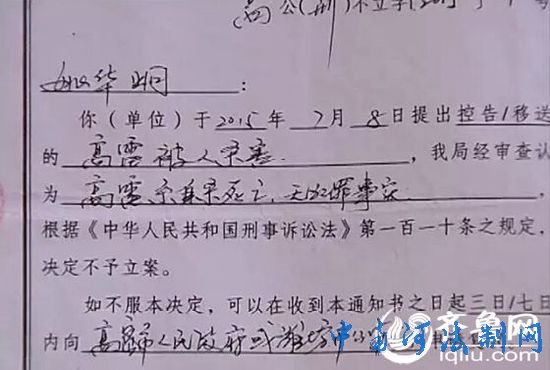 高 公(刑)不立字[201
华
你(单位)于2015年7月8日提出控告/移送
的 高雷被人杀害 ,我局经审查认
为 高雷系自杀死亡、无犯罪事实 ,
根据《中华人民共和国刑事诉讼法》第一百一十条之规定,
决定不予立案。
如不服本决定,可以在收到本通知书之日起三日/七日
内向 高密市人民政府或潍坊
齐鲁网
iqilu.com
法制网